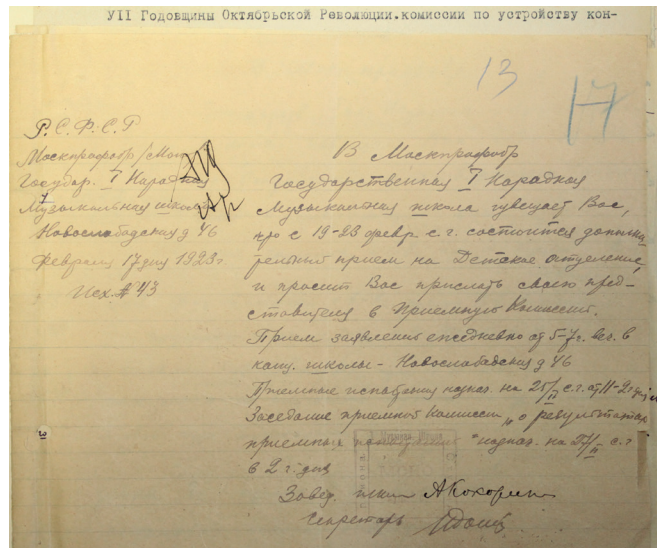 УІІ Годовщины Октябрьской Революции.комиссии по устройству кон-
13
17
Р.С.Ф.С.Р
Москпрофобр
Государ. I Народная
Музыкальная школа
Новослабадская д 46
Февраля 17 дня 1923 г
Исх. № 43
В Москпрофобр
Государственная I Народная
Музыкальная школа Вас,
что с 19-23 февр. с.г. состоится дополни
тельный прием на Детское отделение,
и просит Вас прислать своего пред-
ставителя в Приемную Комиссию.
Прием заявлений ежедневно от 5-7 г. веч. в
канц. школы - Новослабадская д 46
Приемные испытания назнач. на 25/II с.г. от 11-2 г дня
Заседание приемной Комиссии "о результатах
приемных испытаний" назнач. на /II с.г
в 2 г. дня
Завед. школ А Кокорин
Секретарь
31